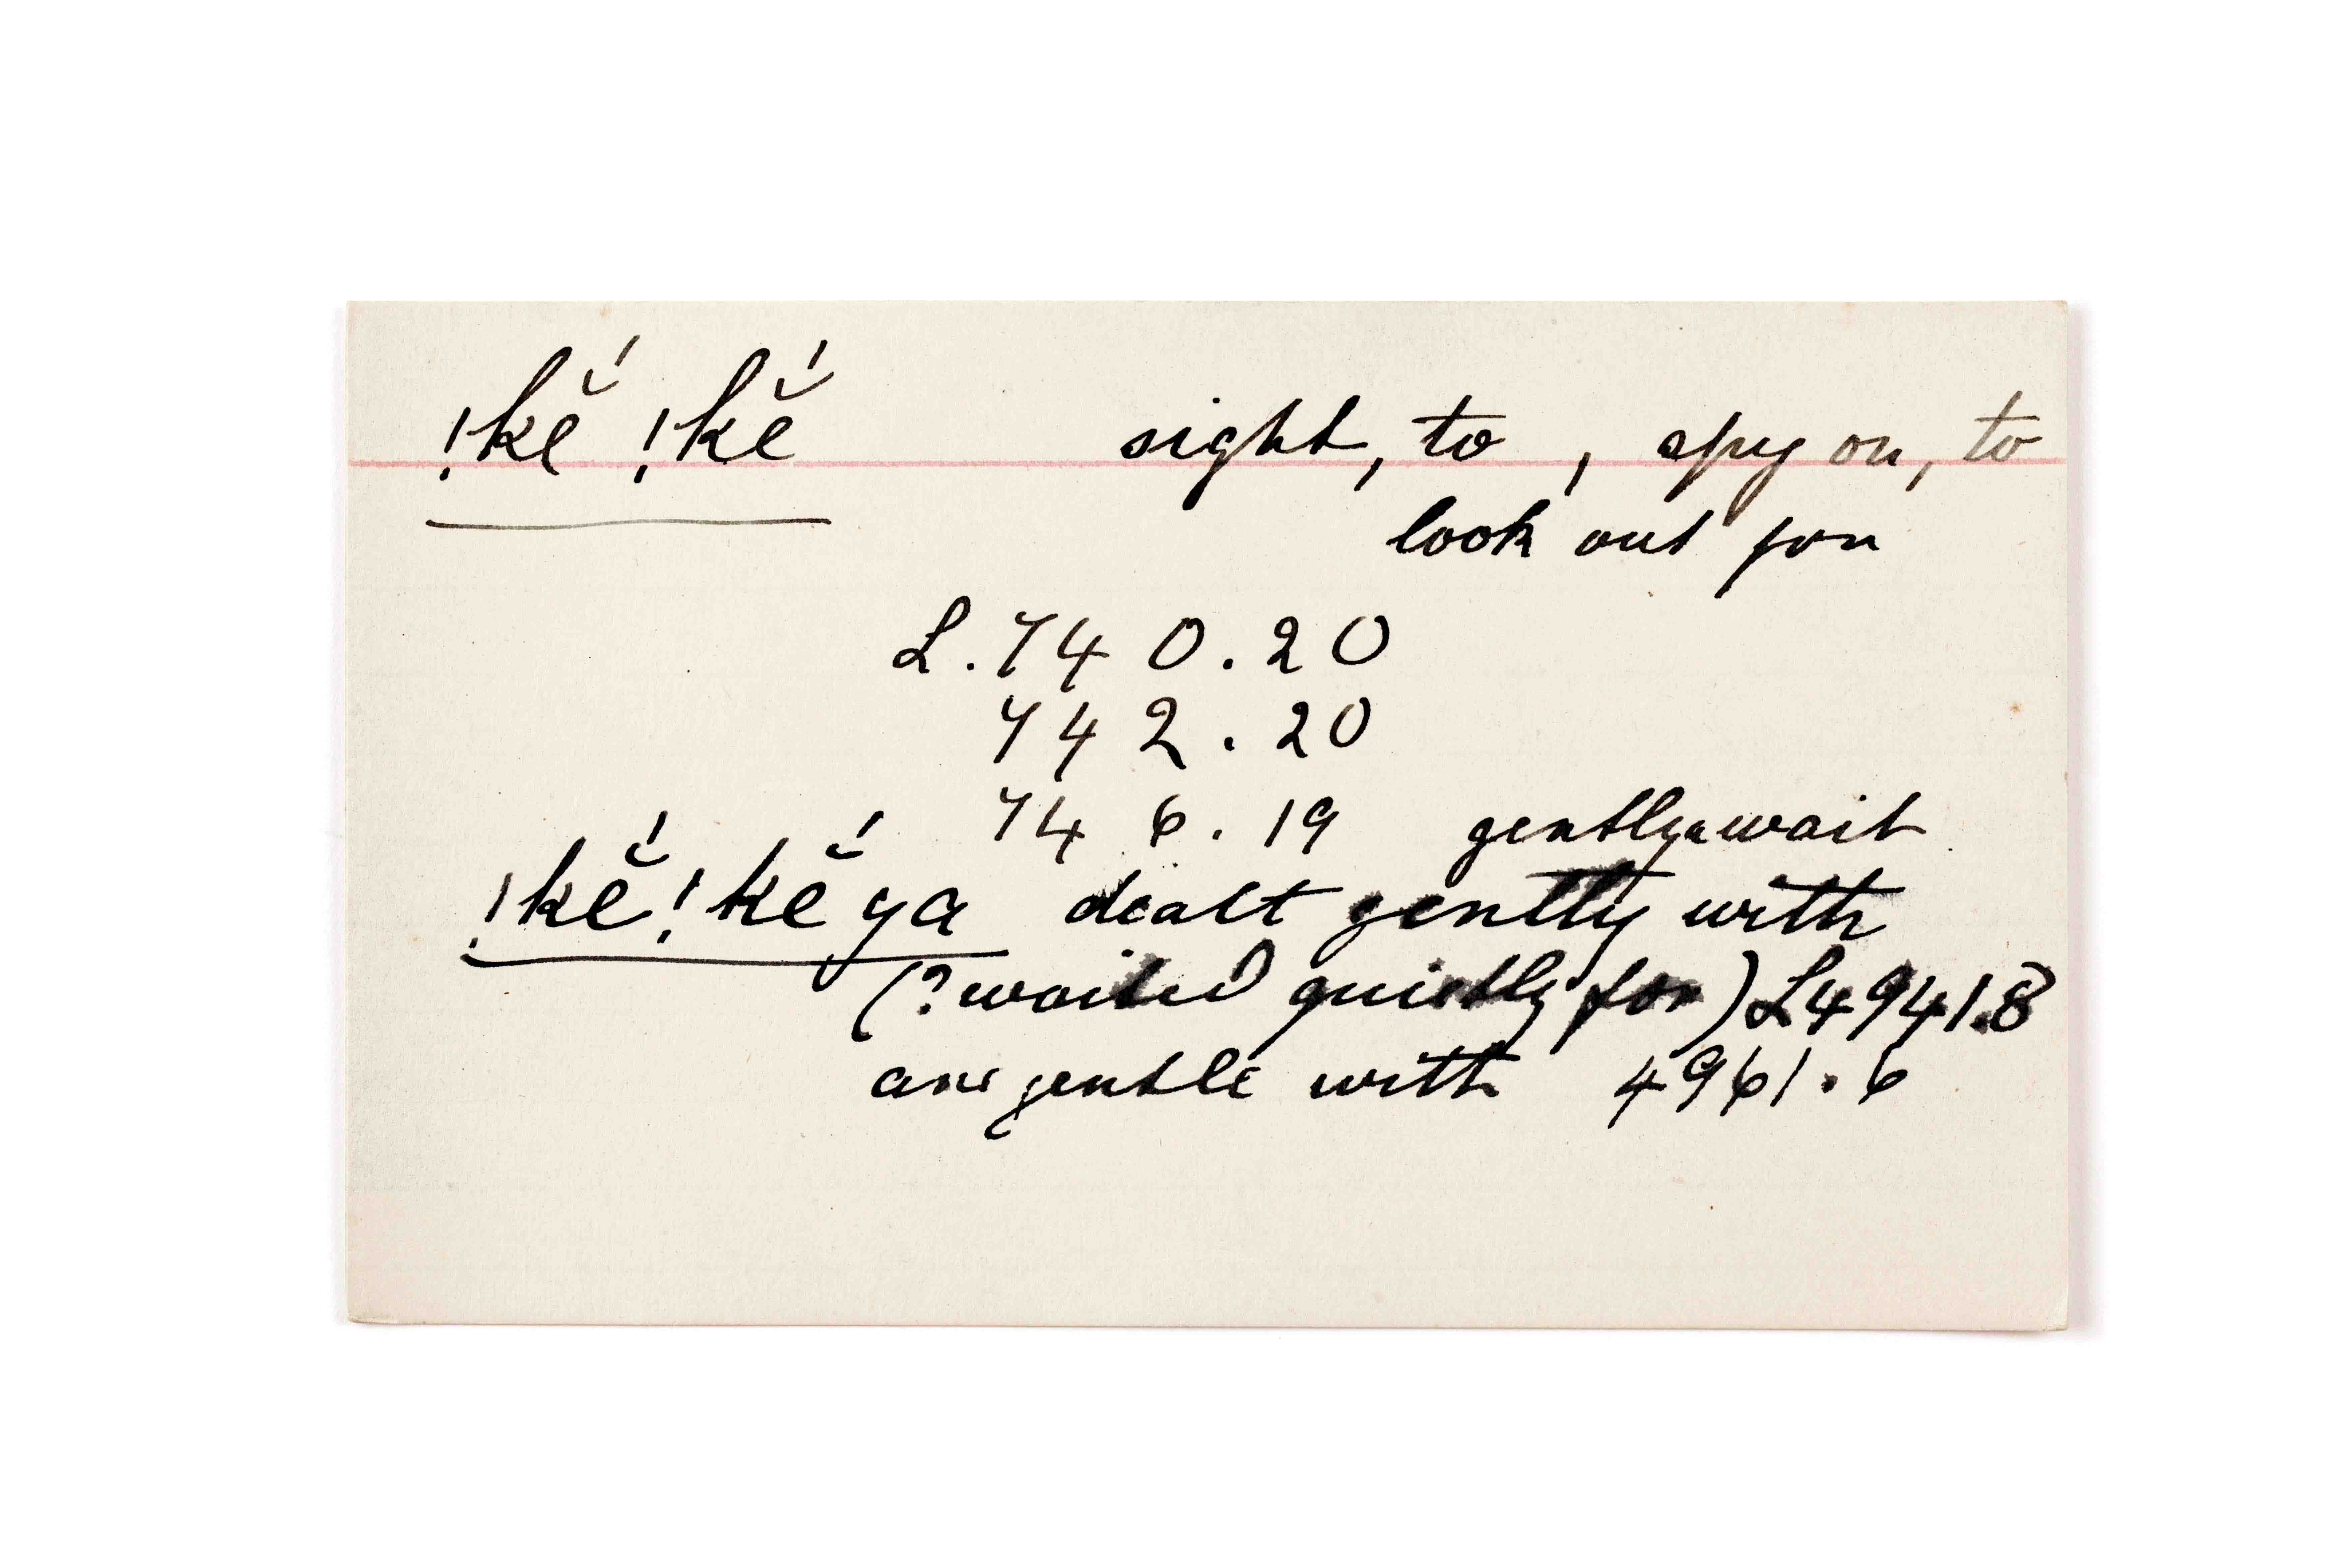 !kĕ́ !kĕ́ sight, to , spy on, to
look out for
L.740.20
742.20
746.19 gently await
!kĕ́!kĕ́ ya dealt gently with
(? waited quietly for) L4941.8
are gentle with 4961.6